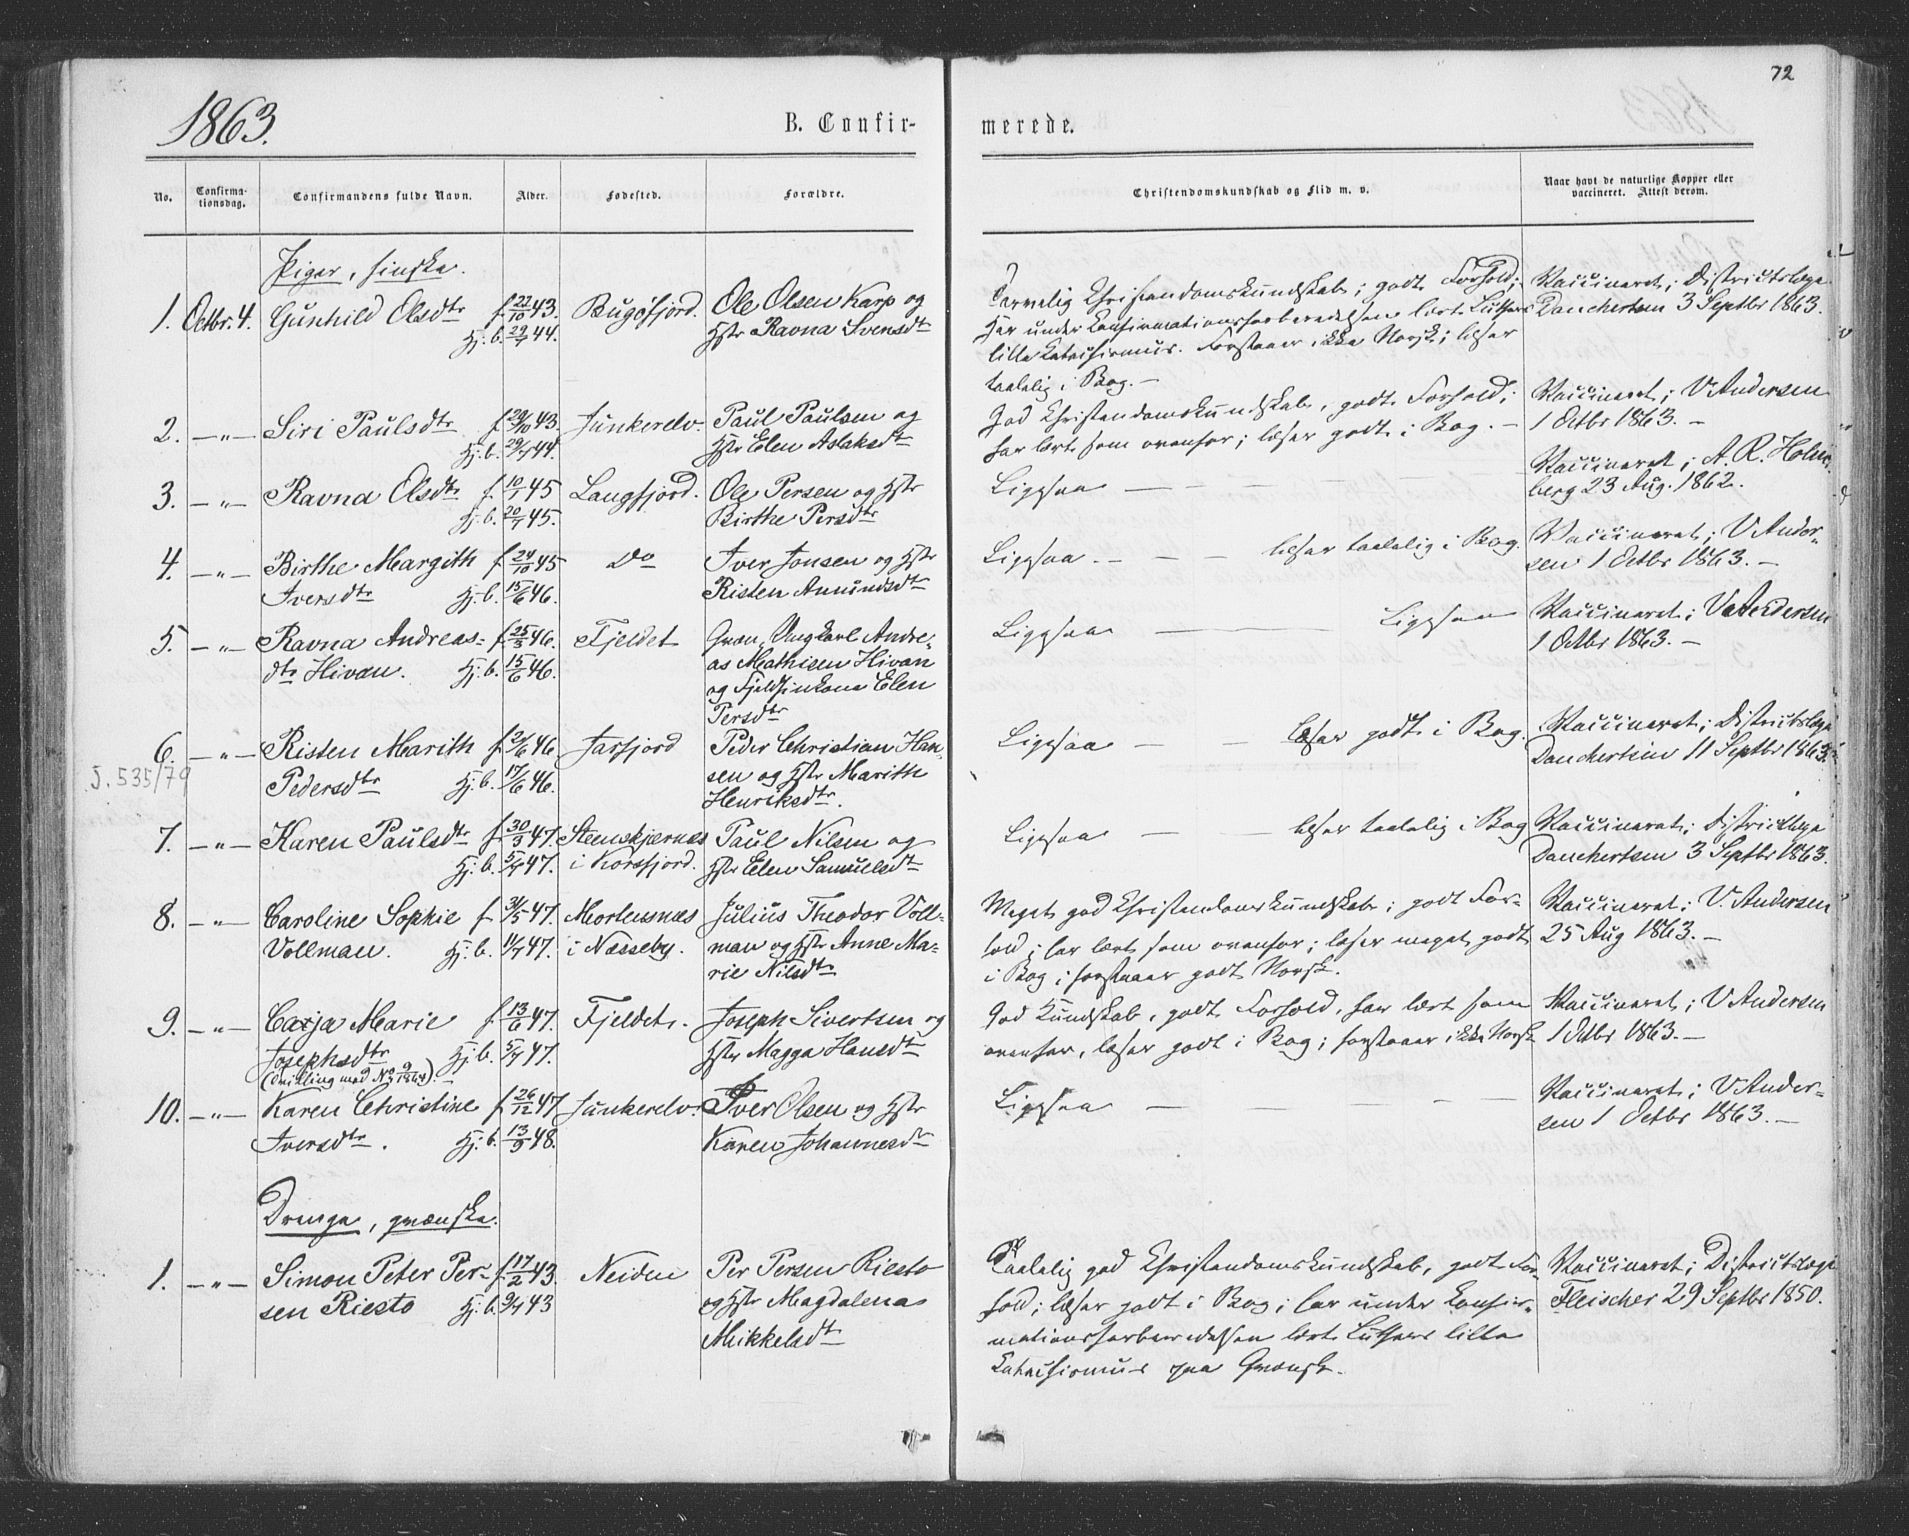 72
1863.
B. Confir-
merede.
No.
Confirma-
tionsdag.
Confirmandens fulde Navn.
Alder.
Fødested.
Forældre.
Christendomskundskab og Flid m. v.
Naar havt de naturlige Kopper eller
vaccineret. Attest derom.
Piger, finske.
1. Octbr. 4. Gunhild Olsdtr f. 22/10 43. Bugøfjord. Ole Olsen Karp og
Hj. b. 29/1 44. Hstr Ravna Svensdtr
Tarvelig Christendomskundskab; godt Forhold;
Har under Confirmationsforberedelsen lært Luthers
lille Katechismus. Forstaaer ikke Norsk; læser
taalelig i Bog. –
Vaccineret; Districtslæge
Danchertsen 3 Septbr 1863.
2. –"– Siri Paulsdtr f. 29/10 43. Junkerelv. Paul Paulsen og
Hj. b. 29/1 44. Hstr Elen Aslaksdtr
God Christendomskundskab, godt Forhold;
har lært som ovenfor; læser godt i Bog. –
Vaccineret; V. Andersen
1 Octbr 1863. –
3. –"– Ravna Olsdtr f. 10/1 45 Langfjord. Ole Persen og Hstr
Hj. b. 20/7 45. Birthe Persdtr
Ligesaa – – –
Vaccineret; A. R. Holm-
berg 23 Aug. 1862.
4. –"– Birthe Margith f. 24/10 45 Do Iver Jonsen og Hstr
Iversdtr Hj. b. 15/6 46. Risten Amundsdtr
Ligesaa. – – – læser taalelig i Bog.
Vaccineret; V. Ander-
sen 1 Octbr 1863. –
5. –"– Ravna Andreas- f. 25/3 46. Fjeldet Qvæn, Ungkarl Andre-
dtr Hivan. Hj. b. 15/6 46. as Mathisen Hivan
og Fjeldfinkone Elen
Persdtr
Ligesaa – – – Ligesaa
Vaccineret; V. Andersen
1 Octbr 1863. –
6. –"– Risten Marith f. 2/6 46 Jarfjord Peder Christian Han-
Pedersdtr Hj. b. 17/6 46. sen og Hstr Marith
Henriksdtr.
J. 535/79
Ligesaa – – læser godt i Bog.
Vaccineret; Districtslæge
Danchertsen 11 Septbr 1863.
7. –"– Karen Paulsdtr f. 30/3 47. Stenskjernæs Paul Nilsen og
Hj. b. 5/4 47. i Korsfjord. Hstr Elen Samuelsdtr
Ligesaa – – læser taalelig i Bog
Vaccineret; Districtslæge
Danchertsen 3 Septbr 1863.
8. –"– Caroline Sophie f. 31/5 47. Mortensnæs Julius Theodor Voll-
Vollman. Hj. b. 11/7 47. i Næsseby. man og Hstr Anne Ma-
rie Nilsdtr
Meget god Christendomskundskab; godt For-
hold; har lært som ovenfor; læser meget godt
i Bog; forstaaer godt Norsk.
Vaccineret; V. Andersen
25 Aug 1863. –
9. –"– Caxja Marie f. 13/6 47. Fjeldet. Joseph Sivertsen og
Josephsdtr Hj. b. 5/7 47. Hstr Magga Hansdtr
(Tvilling med No 9/1864). –
God Kundskab, godt Forhold, har lært som
ovenfor, læser godt i Bog; forstaaer ikke Norsk
Vaccineret; V. Andersen
1 Octbr 1863. –
10. –"– Karen Christine f. 26/12 47 Junkerelv. Iver Olsen og Hstr
Iversdtr. Hj. b. 13/9 48. Karen Johannesdtr
Ligesaa – – – –
Vaccineret; V. Ander-
sen 1 Octbr 1863. –
Drenge, qvænske.
1. –"– Simon Peter Per- f. 17/2 43. Neiden Per Persen Riesto
sen Riesto Hj. b. 9/7 43 og Hstr Magdalena
Mikkelsdtr
Taalelig god Christendomskundskab, godt For-
hold; læser godt i Bog; har under Confir-
mationsforberedelsen lært Luthers lille
Katechismus paa Qvænsk.
Vaccineret; Districtslæge
Fleischer 29 Septbr 1850.